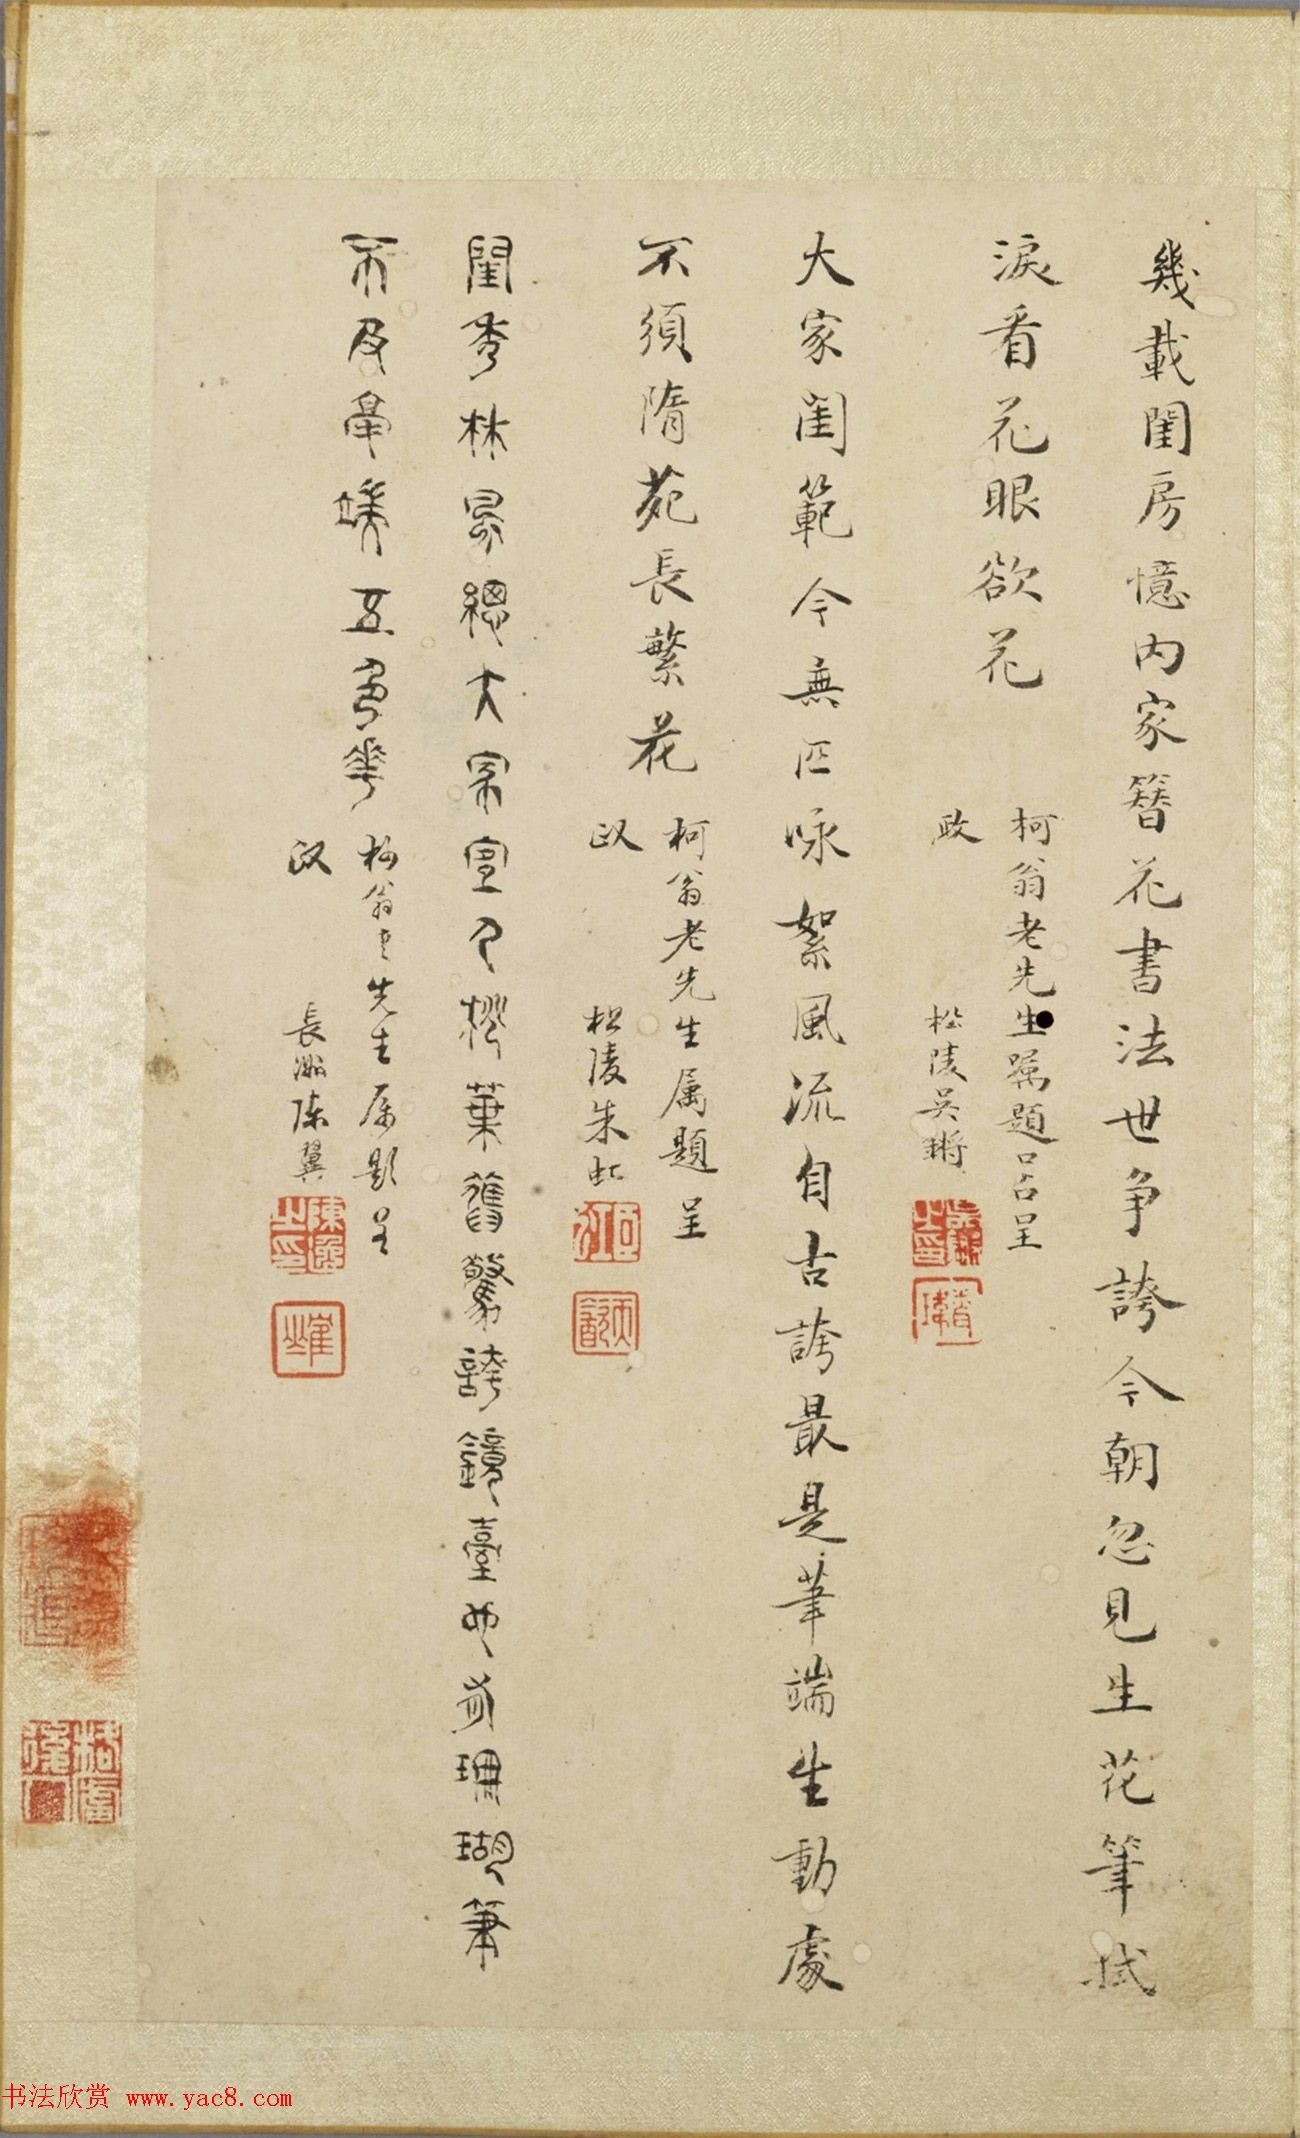 幾載閨房憶内家簪花書法世争誇今朝忽見生花筆拭
淚看花眼欲花
柯翁老先生屬題口占呈
政
松陵吳鏘
大家閨範今無匹咏絮風流自古誇最是筆端生動處
不須隋苑長繁花
柯翁老先生属題呈
政
松陵朱虹
閨秀林風總大家宜人桃葉舊驚誇鏡臺安有珊瑚筆
不及毫端五色華
柯翁老先生属題呈
政
長洲陳翼
书法欣赏 www.yac8.com